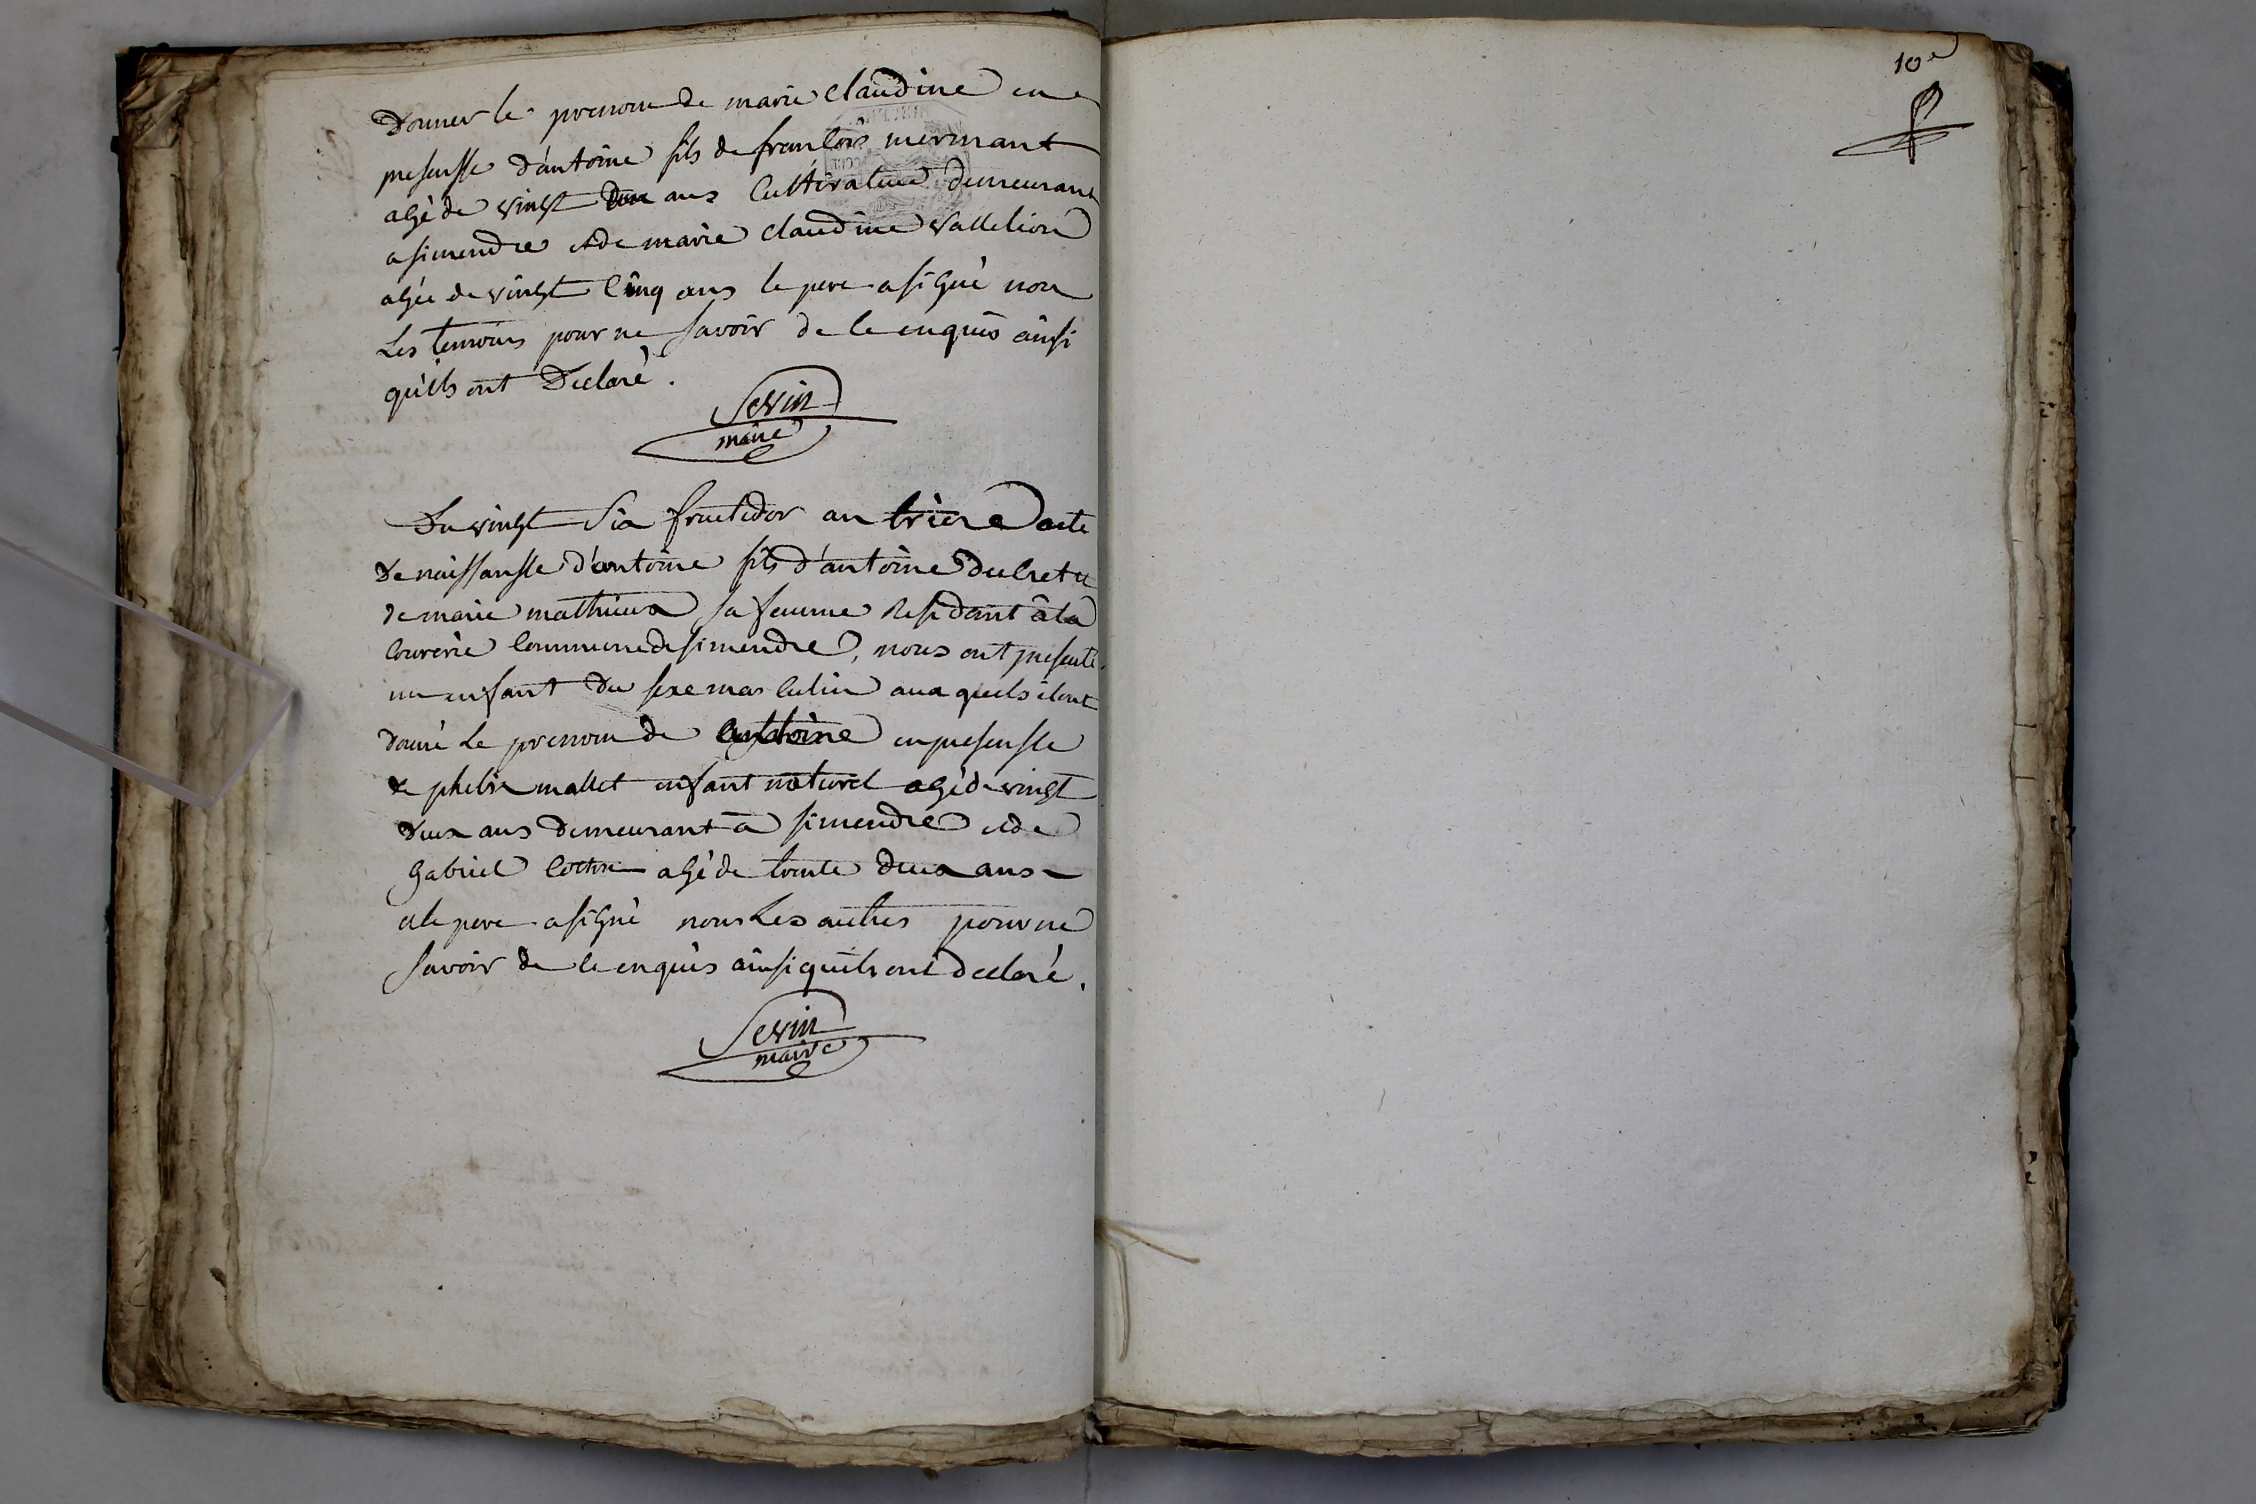 Donner le prenom de marie claudine en
presensse d'antoine fils de francois mermant
agé de vingt deux ans cultivateur demeurant
a simendre et de marie claudine vallelion
agée de vingt cinq ans le pere a signé non
Les temoins pour ne savoir de ce enquis ainsi
qu'ils ont Declaré.
Sevin
maire
Du vingt six fructidor an treize acte
De naissansse d'antoine fils d'antoine Ducret et
de marie mathieux sa femme Residant à la
courerie commune de simendre, nous ont presenté
un enfant du sexe mas culin aux quels il ont
donné Le prenom de antoine en presensse
de phelix mallet enfant naturel agé de vingt
deux ans demeurant à simendre et de
gabriel agé de trente deux ans
et le pere a signé nons Les autres pour ne
savoir de ce enquis ainsi qu'ils ont declaré.
Sevin
maire
10e